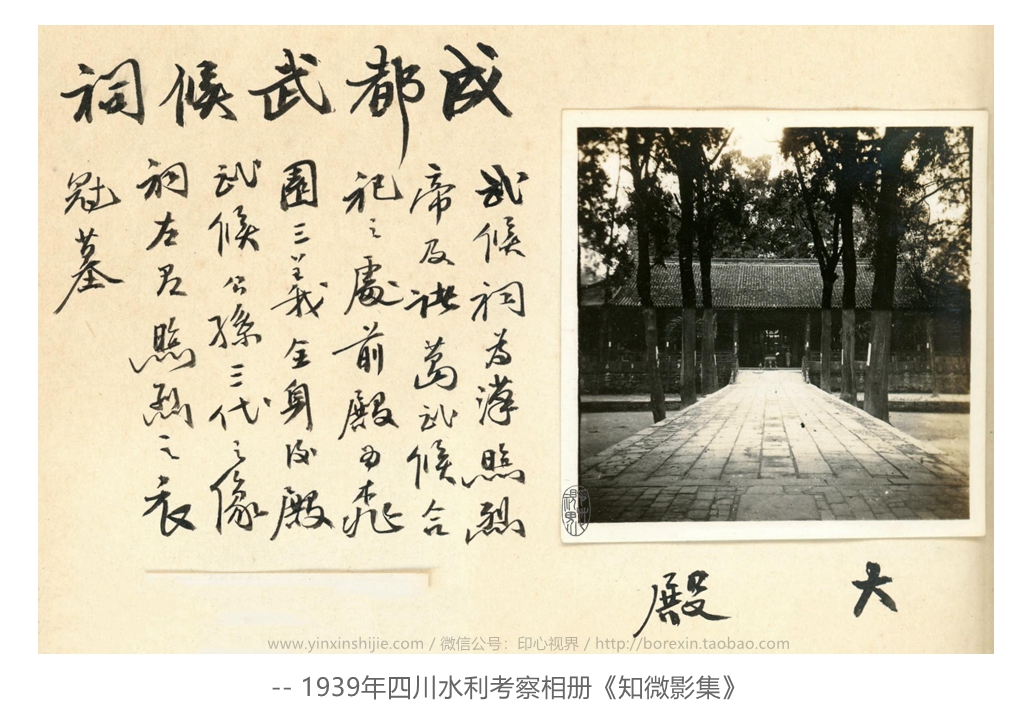 成都武候祠
武候祠为漢照烈
帝及諸葛武候合
祀之處前殿为桃
園三義全身後殿
武候公孫三代之像
祠左照烈之衣
冠墓
大殿
www.yinxinshijie.com / 微信公号：印心视界 / http://borexin.taobao.com
-- 1939年四川水利考察相册《知微影集》